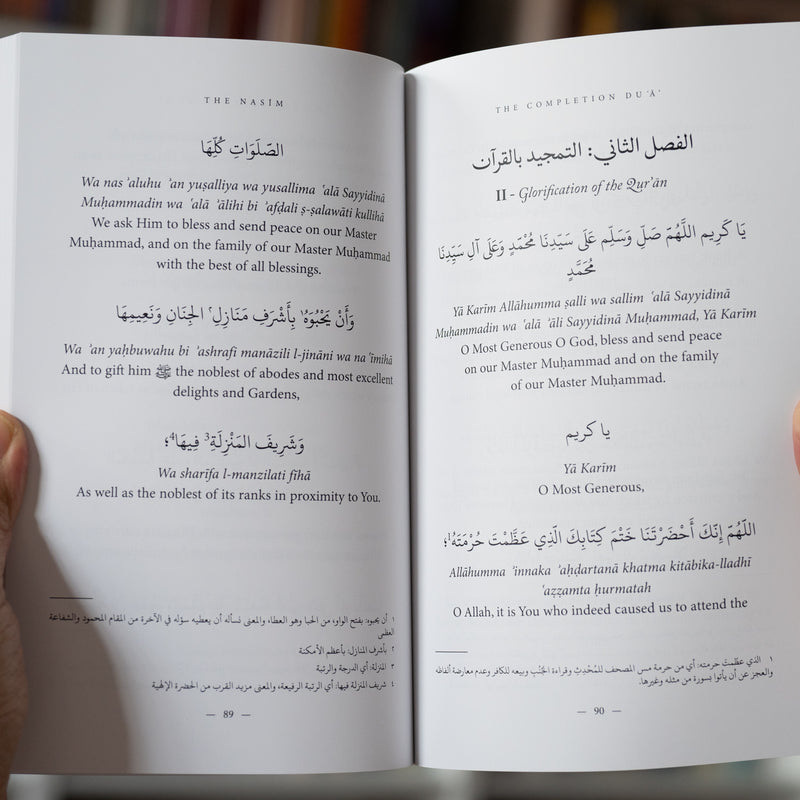 THE NASĪM
الصَّلَوَاتِ كُلِّهَا
Wa nas ʾaluhu ʾan yuṣalliya wa yusallima ʿalā Sayyidinā
Muḥammadin wa ʿalā ʾālihi bi ʾafḍali ṣ-ṣalawāti kullihā
We ask Him to bless and send peace on our Master
Muḥammad, and on the family of our Master Muḥammad
with the best of all blessings.
وَأَنْ يَحْبُوَهُ١ بِأَشْرَفِ مَنَازِلِ٢ الجِنَانِ وَنَعِيمِهَا
Wa ʾan yaḥbuwahu bi ʾashrafi manāzili l-jināni wa na ʿīmihā
And to gift him ﷺ the noblest of abodes and most excellent
delights and Gardens,
وَشَرِيفَ المَنْزِلَةِ3 فِيهَا4؛
Wa sharīfa l-manzilati fīhā
As well as the noblest of its ranks in proximity to You.
١ أن يحبوه: بفتح الواو، من الحبا وهو العطاء، والمعنى نسأله أن يعطيه سؤله في الآخرة من المقام المحمود والشفاعة
العظمى
٢ بأشرف المنازل: بأعظم الأمكنة
٣ المنزلة: أي الدرجة والرتبة
٤ شريف المنزلة فيها: أي الرتبة الرفيعة، والمعنى مزيد القرب من الحضرة الإلهية
— 89 —
THE COMPLETION DUʿĀʾ
الفصل الثاني: التمجيد بالقرآن
II - Glorification of the Qurʾān
يَا كَرِيم اللَّهُمَّ صَلِّ وَسَلِّم عَلَى سَيِّدِنَا مُحَمَّدٍ وَعَلَى آلِ سَيِّدِنَا
مُحَمَّدٍ
Yā Karīm Allāhumma ṣalli wa sallim ʿalā Sayyidinā
Muḥammadin wa ʿalā ʾāli Sayyidinā Muḥammad, Yā Karīm
O Most Generous O God, bless and send peace
on our Master Muḥammad and on the family
of our Master Muḥammad.
يا كريم
Yā Karīm
O Most Generous,
اللَّهُمَّ إِنَّكَ أَحْضَرْتَنَا خَتْمَ كِتَابِكَ الَّذِي عَظَّمْتَ حُرْمَتَهُ1؛
Allāhumma ʾinnaka ʾaḥḍartanā khatma kitābika-lladhī
ʿaẓẓamta ḥurmatah
O Allah, it is You who indeed caused us to attend the
١ الذي عظمت حرمته: أي من حرمة مس المصحف للمُحْدِثِ وقراءة الجُنُبِ وبيعه للكافر وعدم معارضة ألفاظه
والعجز عن أن يأتوا بسورة من مثله وغيرها.
— 90 —